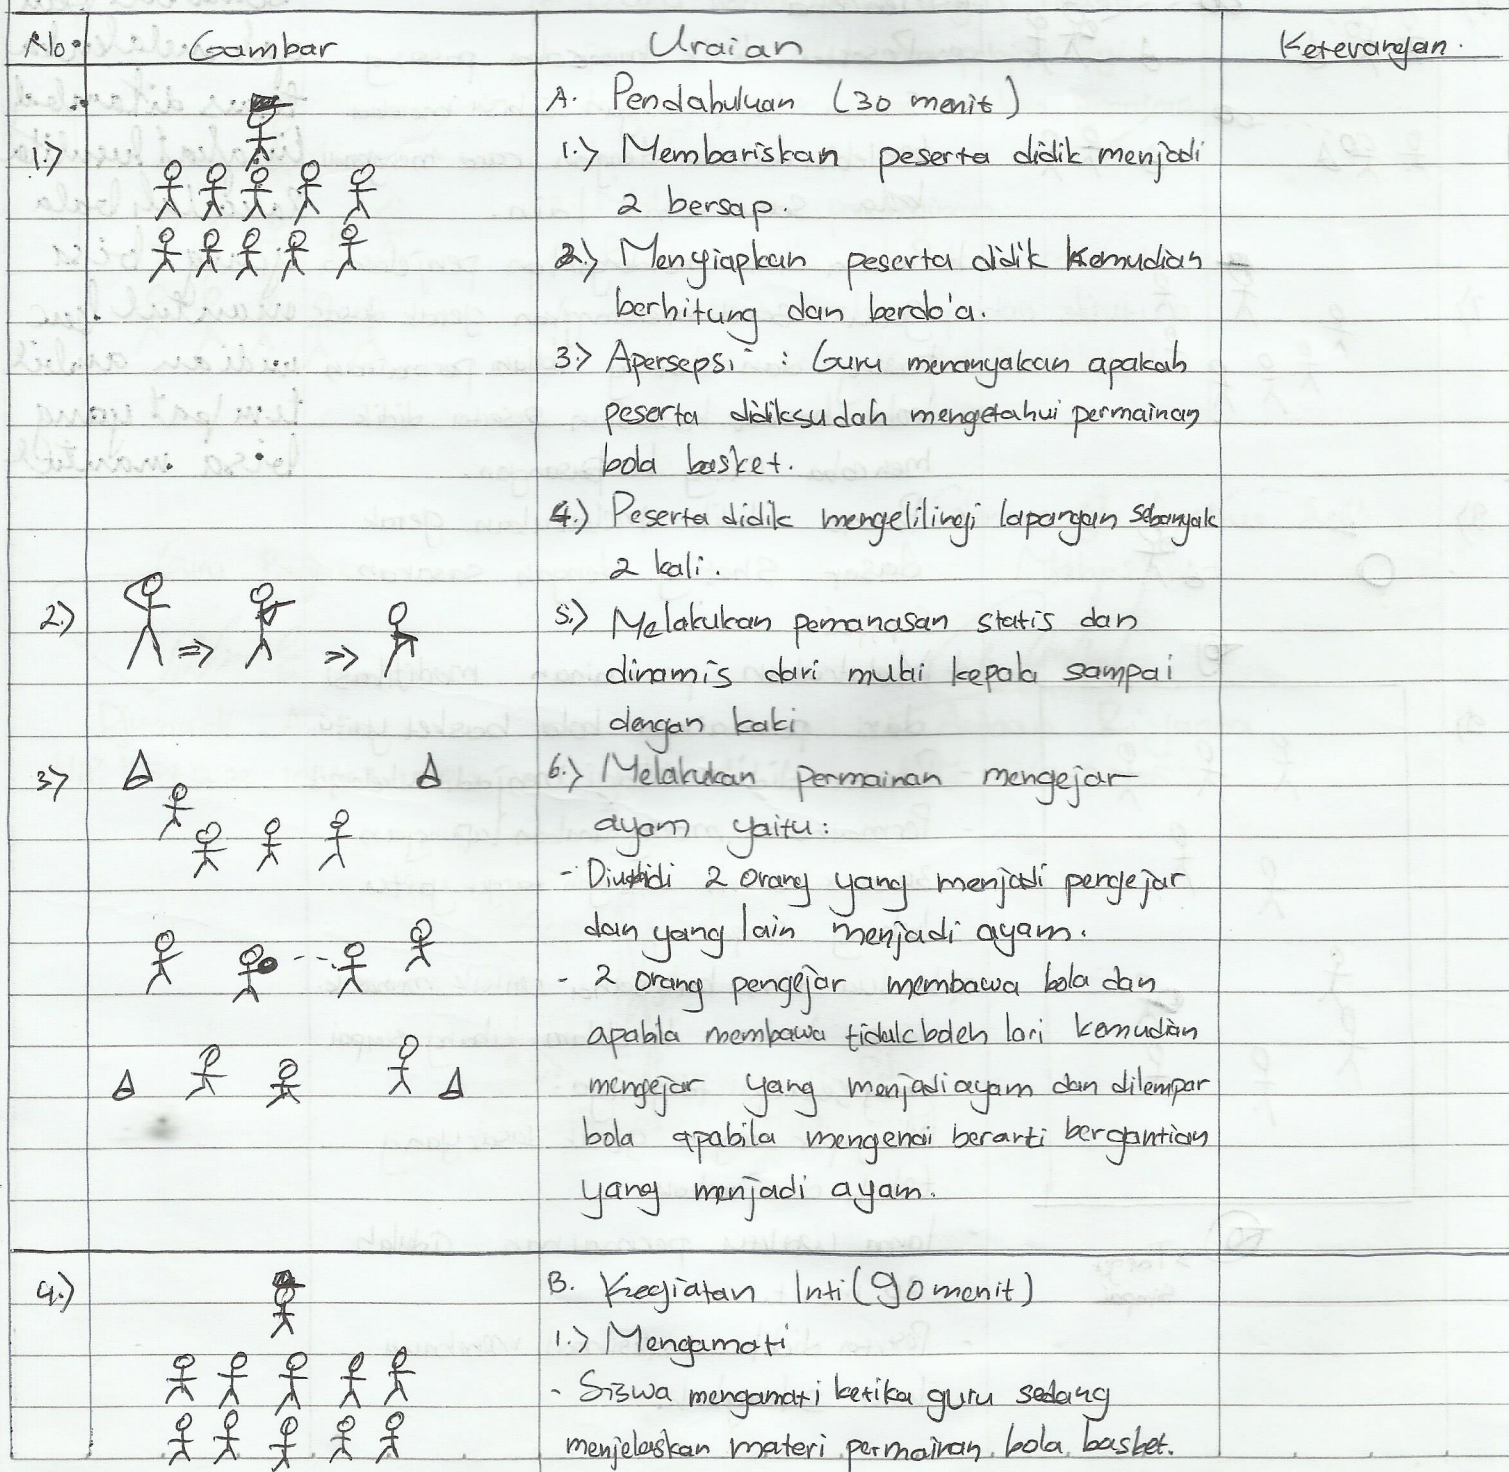 No. Gambar Uraian Keterangan.
A. Pendahuluan (30 menit)
1.) 1.) Membariskan peserta didik menjadi
2 bersap.
2.) Menyiapkan peserta didik kemudian
berhitung dan berdo'a.
3.) Apersepsi : Guru menanyakan apakah
peserta didiksudah mengetahui permainan
bola basket.
4.) Peserta didik mengelilingi lapangan sebanyak
2 kali.
2.) 5.) Melakukan pemanasan statis dan
dinamis dari mulai kepala sampai
dengan kaki
3.) 6.) Melakukan permainan mengejar
ayam yaitu:
- 2 orang yang menjadi pengejar
dan yang lain menjadi ayam.
- 2 orang pengejar membawa bola dan
apabila membawa tidak boleh lari kemudian
mengejar yang menjadi ayam dan dilempar
bola apabila mengenai berarti bergantian
yang menjadi ayam.
4.) B. Kegiatan Inti (90 menit)
1.) Mengamati
- Siswa mengamati ketika guru sedang
menjelaskan materi permainan bola basket.